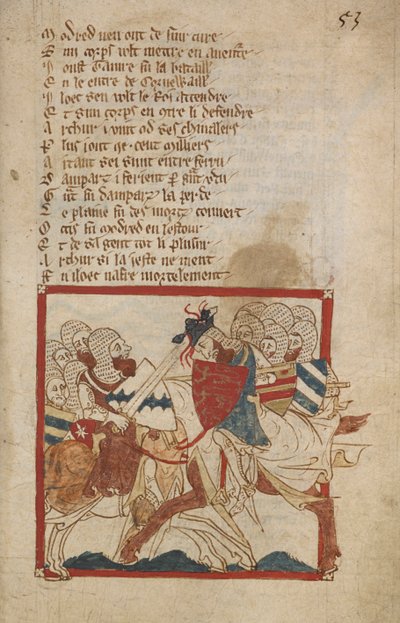 53
Modred neu ont de sun cure
E mi corps volt mettre en auentre
Joust Tamre fu la bataill
E n le entre de Cornewaill
Iloec sen volt le Roi attendre
E t sun corps en otre li defendre
A rthur i vint od ses chiualers
P lus iont qe cent milliers
A itant sei sunt entre feru
D ampart i ferient p
G nt fu dampart la perde
L e plaine fu des morz couert
O ccis fu Modred en lestour
E t de sa gent tot li plusur
A rthur si la ieste ne ment
F u iloec nafre mortelement